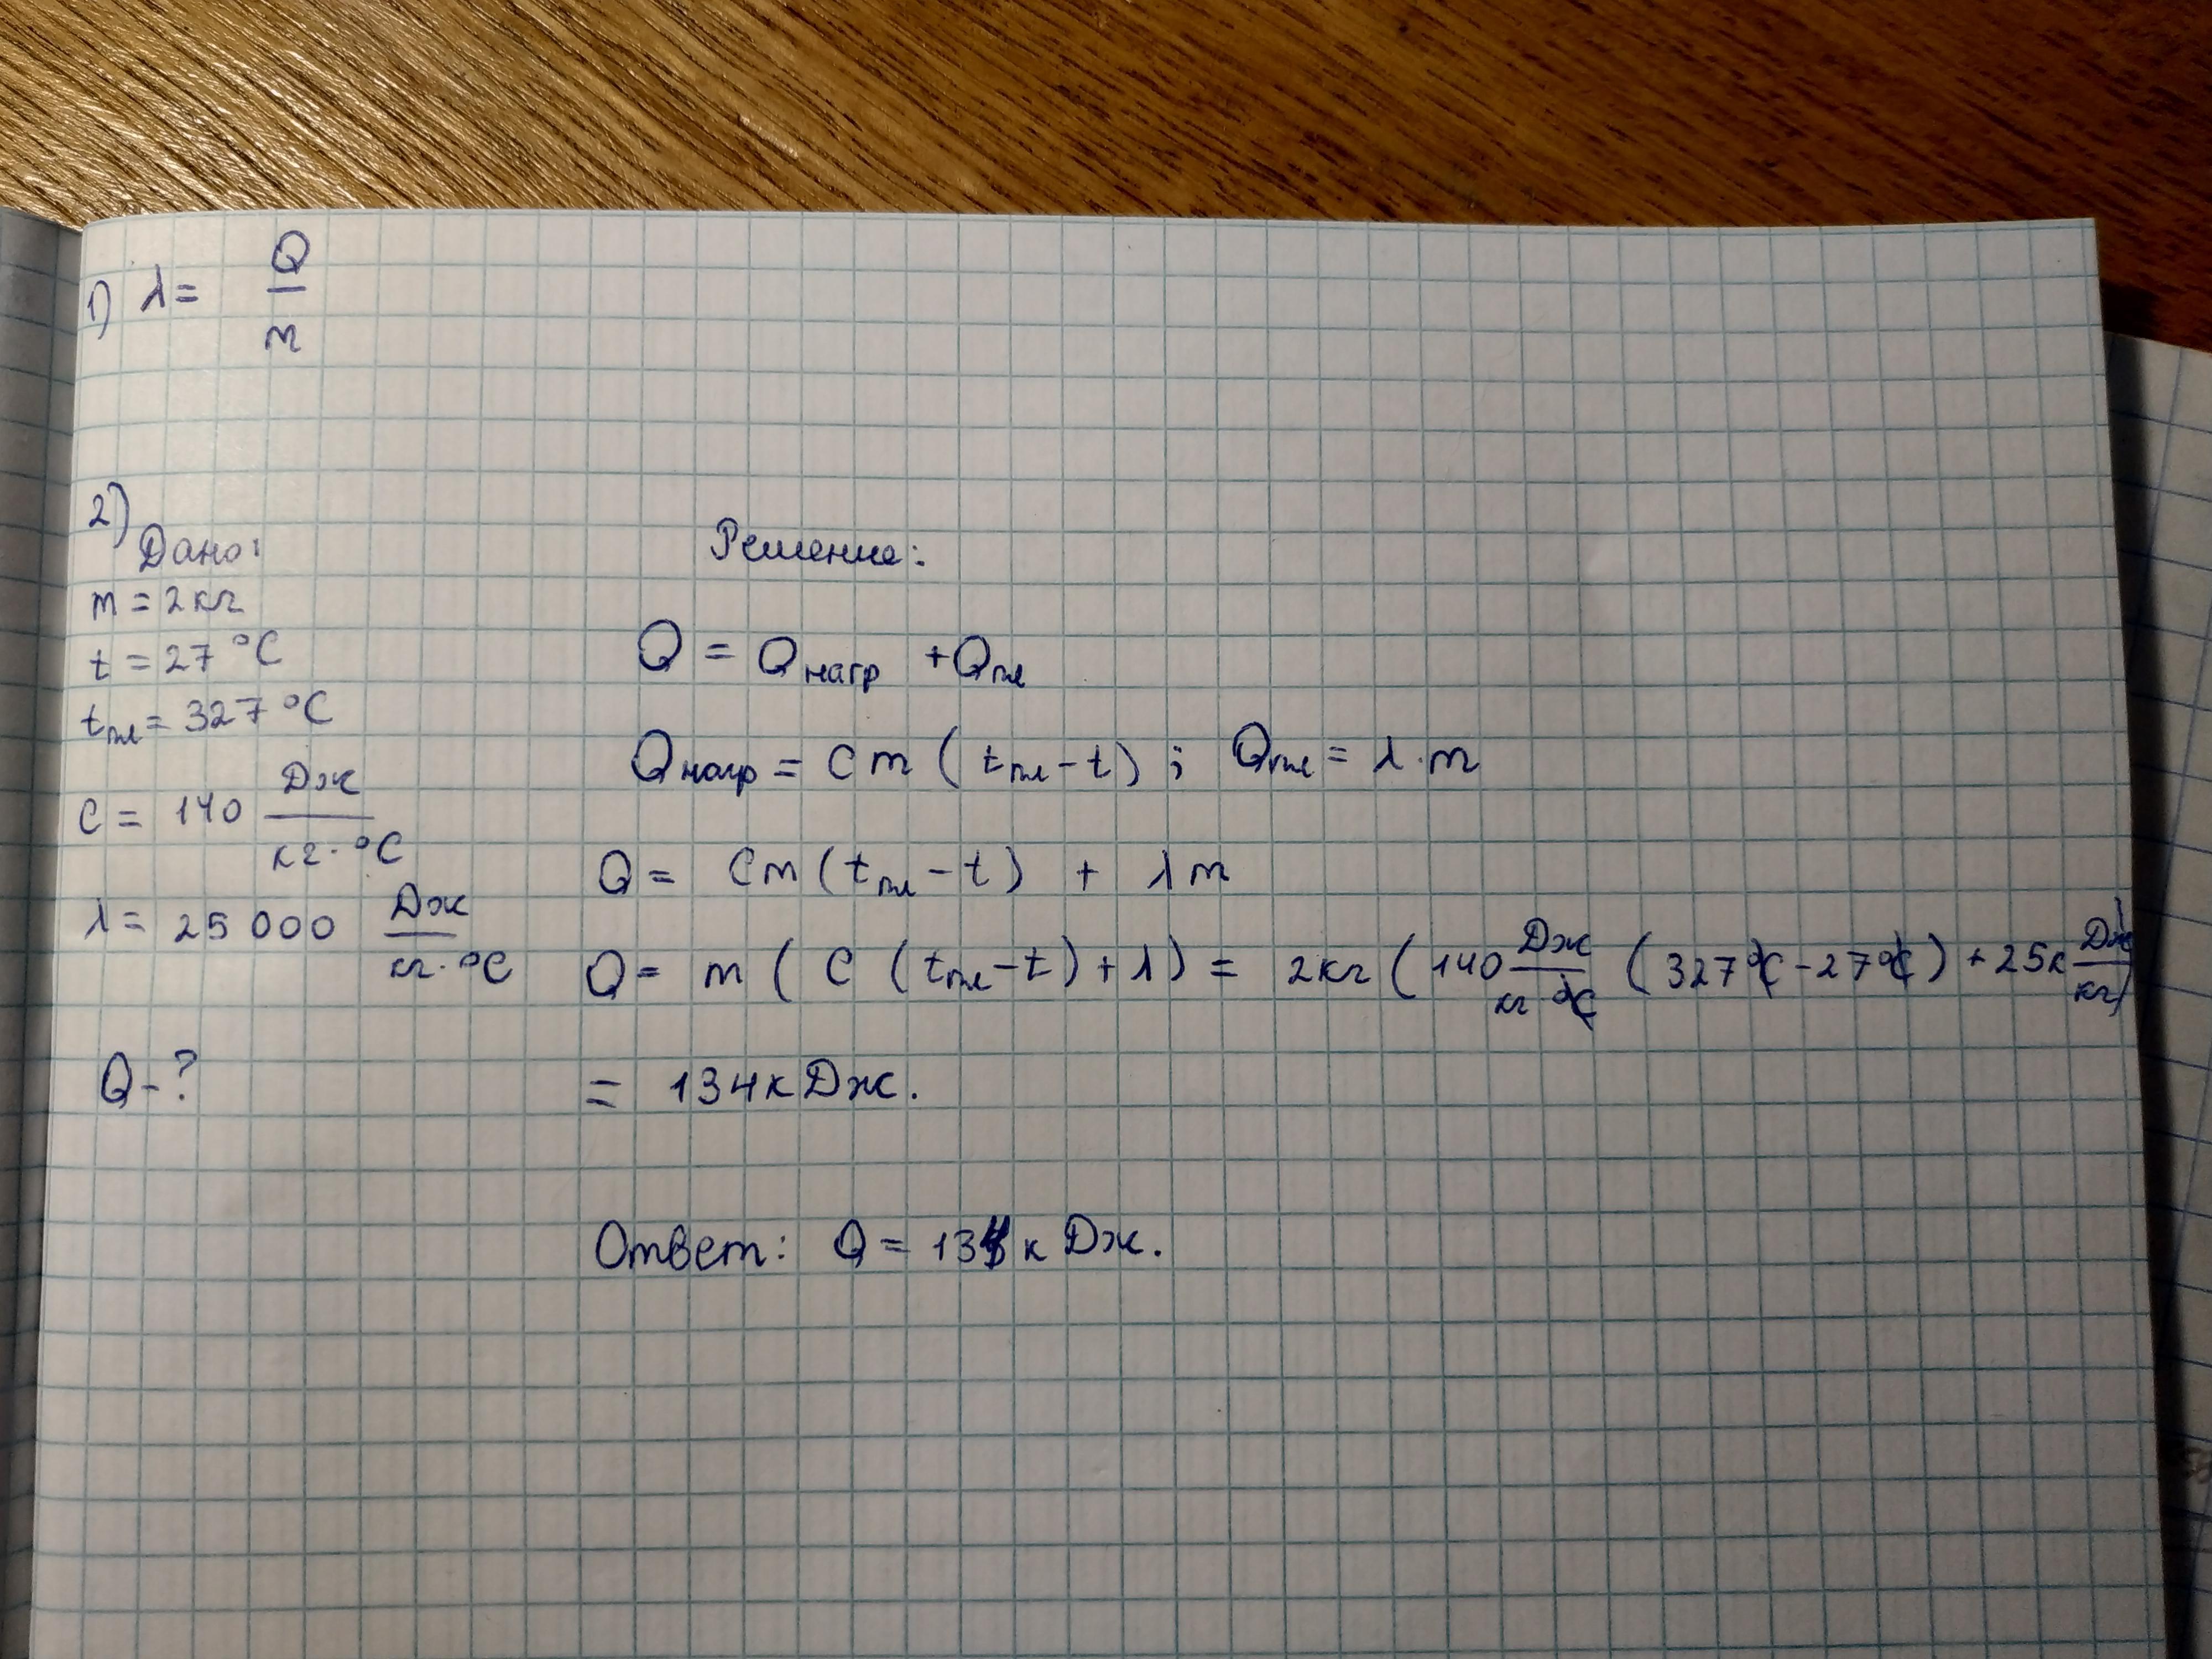 1) λ = Q/m
2)
Дано:
m = 2 кг
t = 27 °C
tпл = 327 °C
c = 140 Дж/кг·°C
λ = 25 000 Дж/кг·°C
Q - ?
Решение:
Q = Qнагр + Qпл
Qнагр = cm (tпл - t) ; Qпл = λ·m
Q = cm (tпл - t) + λm
Q = m ( c (tпл - t) + λ ) = 2кг ( 140 Дж/кг °C ( 327°C - 27°C ) + 25к Дж/кг )
= 134 кДж.
Ответ: Q = 134 к Дж.